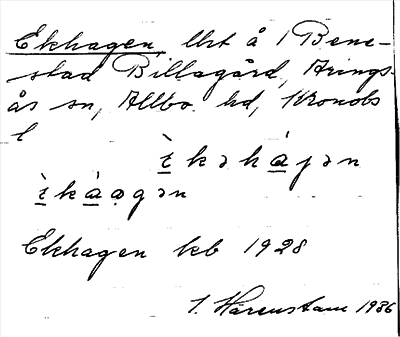 Ekhagen, lht å 1 Bene-
stad Billagård, Arings-
ås sn, Allbo hd, Kronobs
l
ì̱ k ə h á̱ ɡ ə n
ì̱ k à̱ a̱ g ə n
Ekhagen kb 1928
I. Härenstam 1936